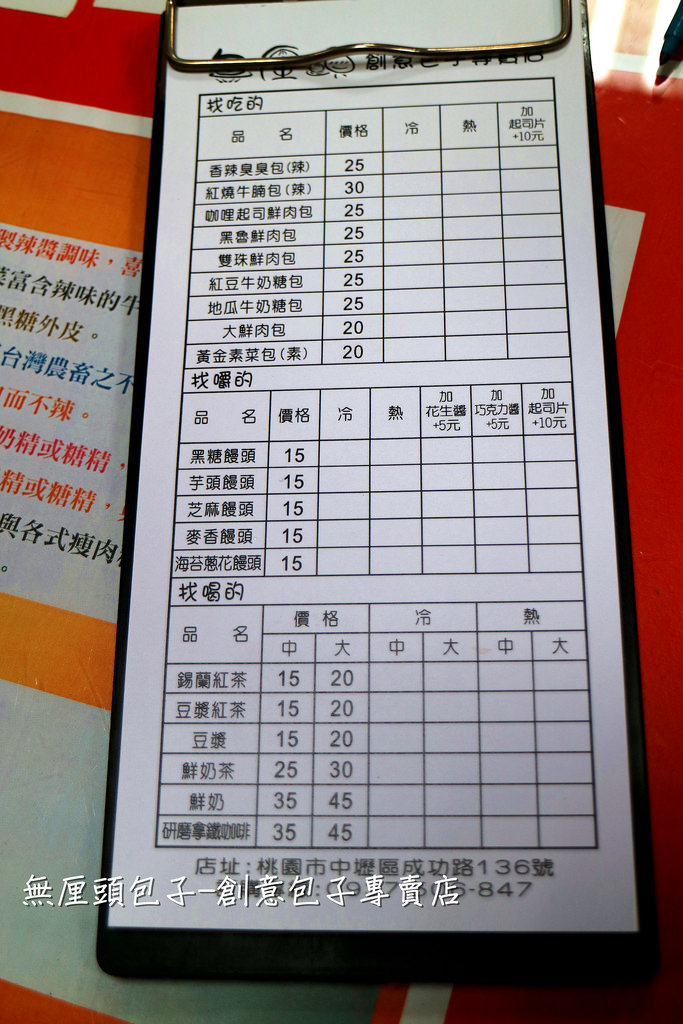 創意包子專賣店
找吃的
品 名 價格 冷 熱 加起司片+10元
香辣臭臭包(辣) 25
紅燒牛腩包(辣) 30
咖哩起司鮮肉包 25
黑魯鮮肉包 25
雙珠鮮肉包 25
紅豆牛奶糖包 25
地瓜牛奶糖包 25
大鮮肉包 20
黃金素菜包(素) 20
找嚼的
品 名 價格 冷 熱 加花生醬+5元 加巧克力醬+5元 加起司片+10元
黑糖饅頭 15
芋頭饅頭 15
芝麻饅頭 15
麥香饅頭 15
海苔蔥花饅頭 15
找喝的
品 名 價格 冷 熱
中 大 中 大 中 大
錫蘭紅茶 15 20
豆漿紅茶 15 20
豆漿 15 20
鮮奶茶 25 30
鮮奶 35 45
研磨拿鐵咖啡 35 45
店址:桃園市中壢區成功路136號
-847
無厘頭包子-創意包子專賣店
製辣醬調味,喜
富含辣味的牛
黑糖外皮。
台灣農畜之不
而不辣。
奶精或糖精,
精或糖精,
與各式瘦肉
。